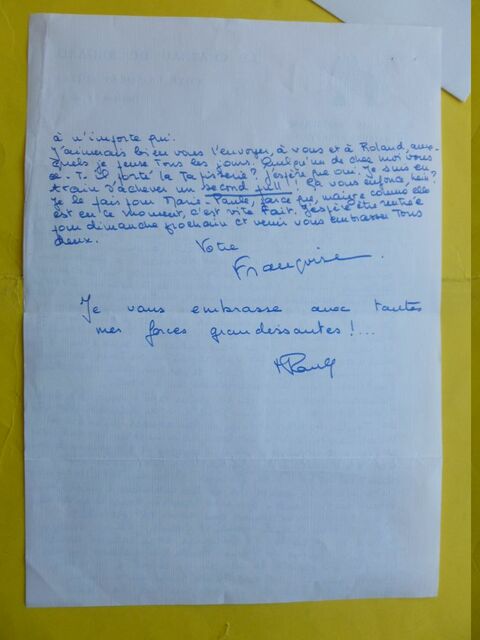 à n'importe qui.
J'aimerais bien vous l'envoyer, à vous et à Roland, aux-
quels je pense tous les jours. Quelqu'un de chez moi vous
a-t-il porté la Tapisserie? J'espère que oui. Je suis en
train d'achever un second pull!! Ça vous enfonce, hein?
Je le fais pour Marie-Paule, parce que, maigre comme elle
est en ce moment, c'est vite fait. J'espère être rentrée
pour dimanche prochain et venir vous embrasser Tous
deux.
Votre
Françoise.
Je vous embrasse avec toutes
mes forces grandissantes!...
MPaule